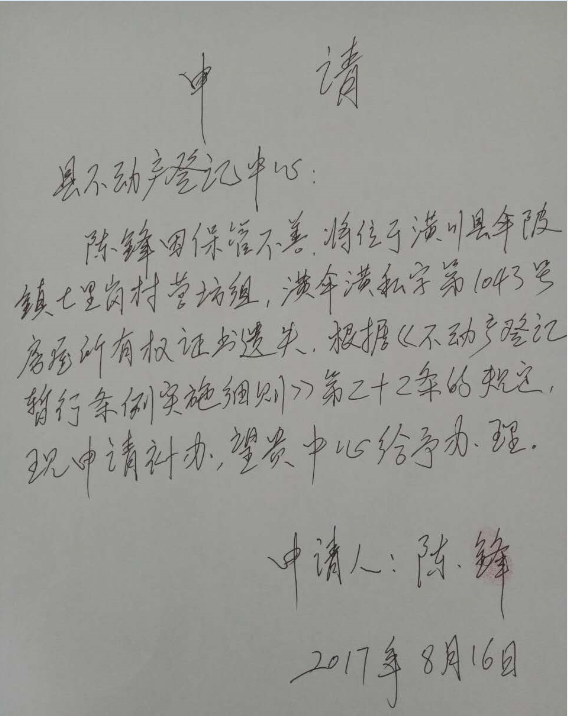 申 请
县不动产登记中心:
陈锋因保管不善,将位于潢川县伞陂
镇七里岗村营坊组,潢伞潢私字第1043号
房屋所有权证书遗失.根据《不动产登记
暂行条例实施细则》第二十二条的规定,
现申请补办,望贵中心给予办理.
申请人:陈锋
2017年8月16日